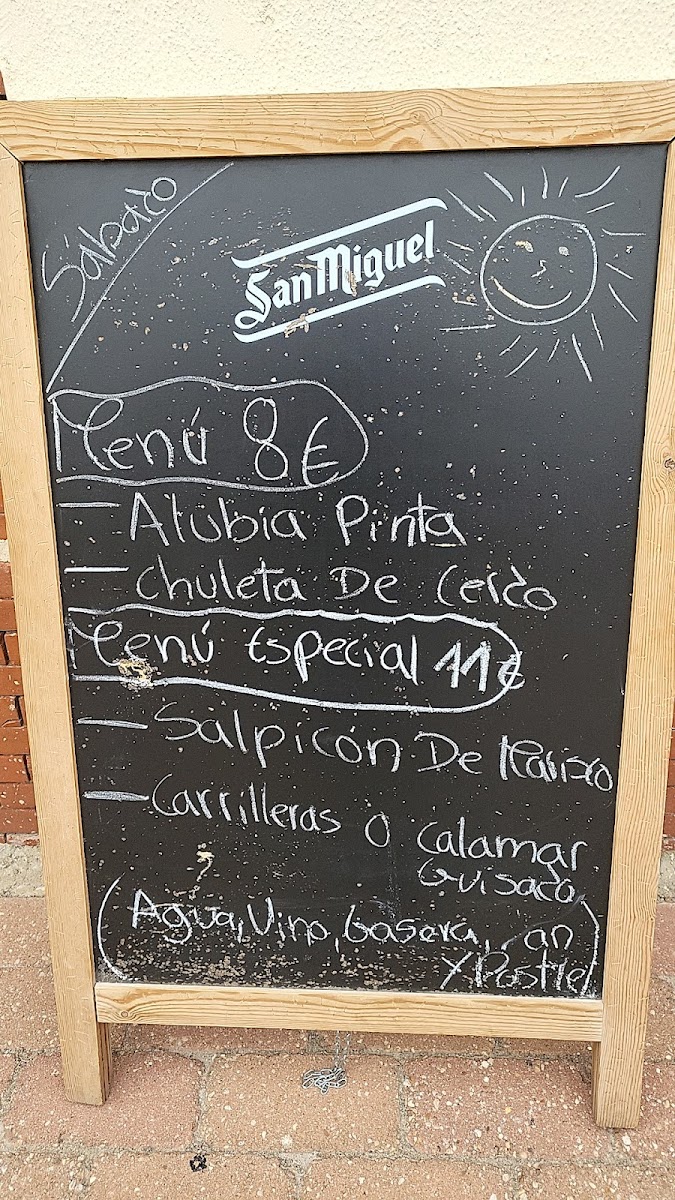 Sábado
San Miguel
Menú 8€
- Alubia Pinta
- Chuleta De Cerdo
Menú Especial 11€
- Salpicón De Marisco
- Carrilleras O Calamar
Guisado
(Agua, Vino, Gasera, an
Y Postre)